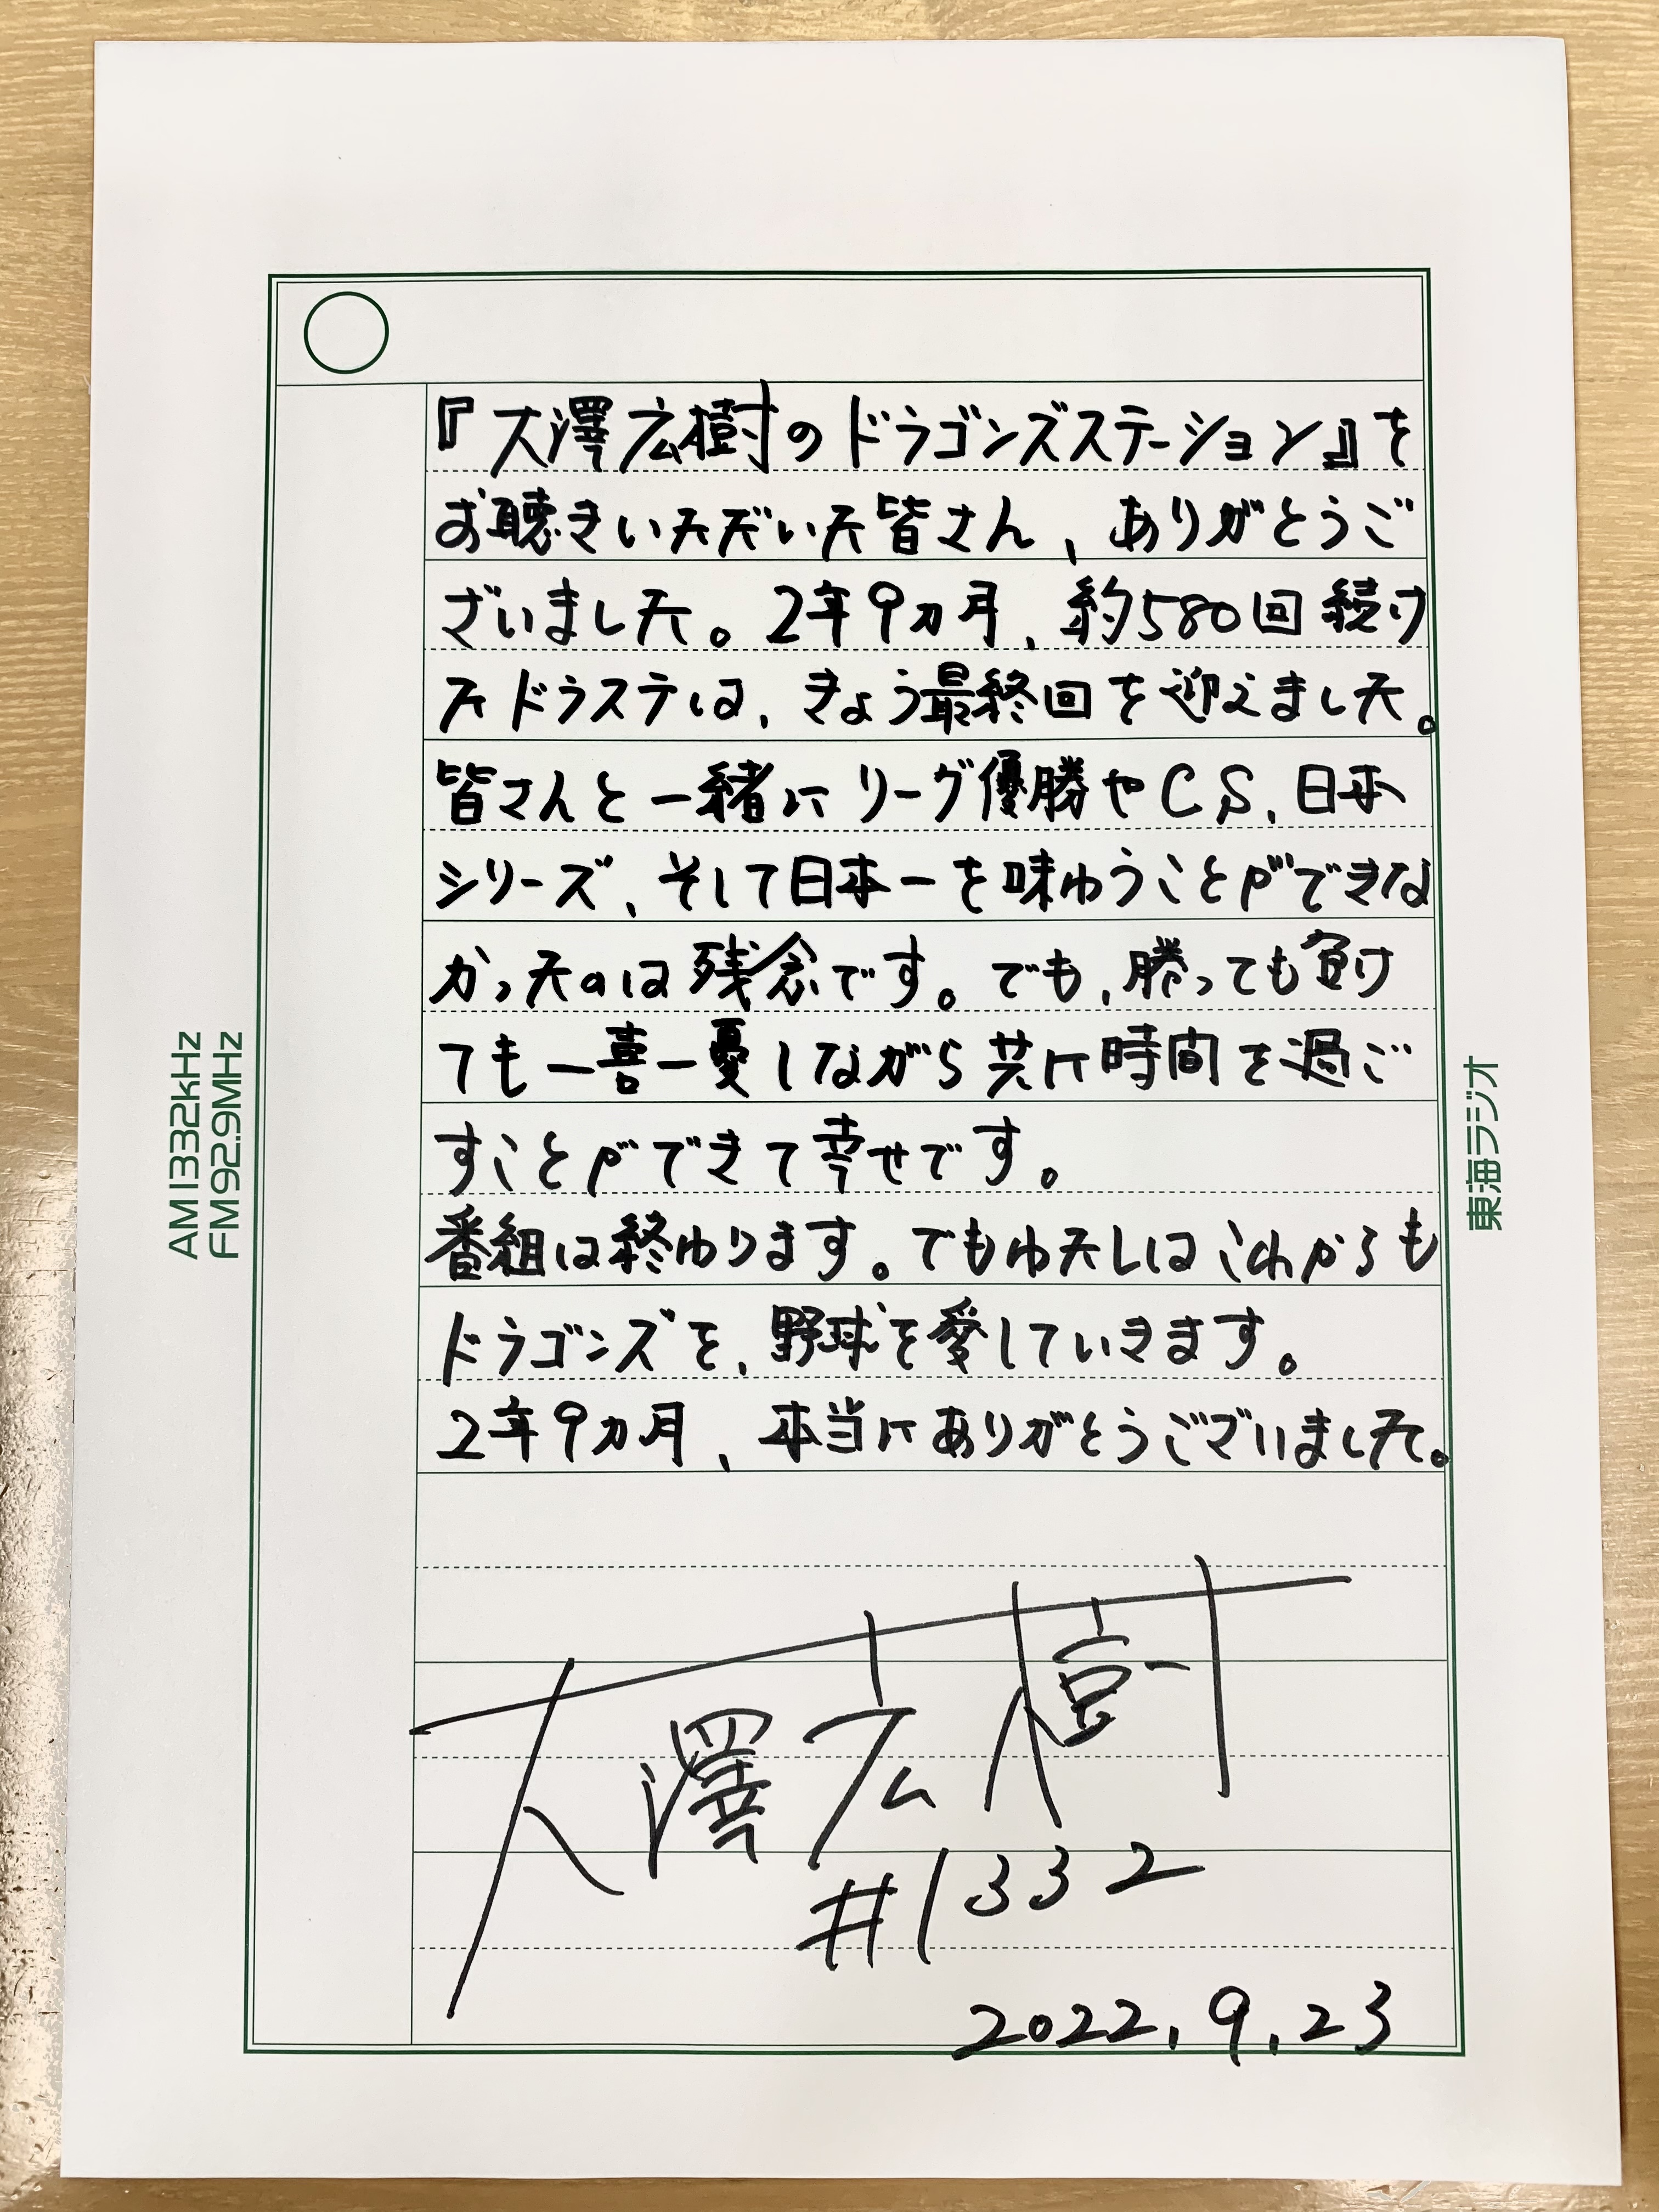 『大澤広樹のドラゴンズステーション』を
お聴きいただいた皆さん、ありがとうご
ざいました。2年9ヵ月、約580回続け
たドラステは、きょう最終回を迎えました。
皆さんと一緒にリーグ優勝やCS、日本
シリーズ、そして日本一を味わうことができな
かったのは残念です。でも、勝っても負け
ても一喜一憂しながら共に時間を過ご
すことができて幸せです。
番組は終わります。でもわたしはこれからも
ドラゴンズを、野球を愛していきます。
2年9ヵ月、本当にありがとうございました。
大澤広樹
#1332
2022.9.23
AM1332kHz
FM92.9MHz
東海ラジオ